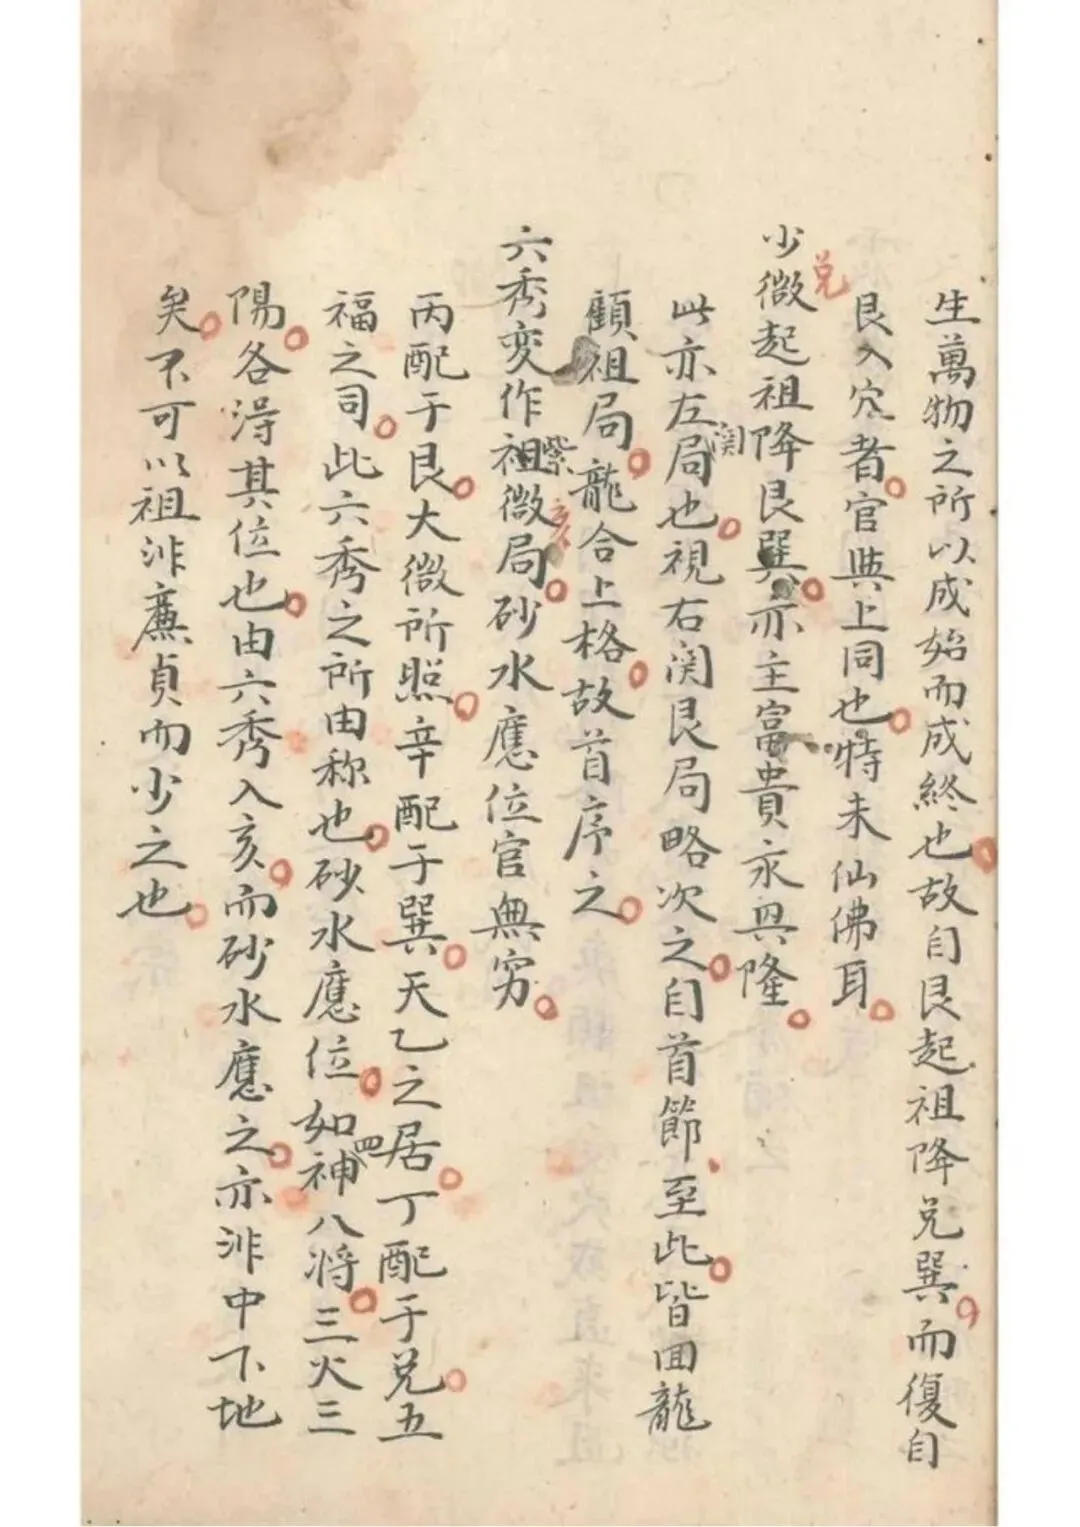 生萬物之所以成始而成終也故自艮起祖降兑巽而復自
艮入穴者官與上同也特未仙佛耳
少微兑起祖降艮巽亦主富貴永興隆
此亦左関局也視右関艮局略次之自首節至此皆回龍
顧祖局龍合上格故首序之
六秀変作祖紫微亥局砂水應位官無穷
丙配于艮大微所照辛配于巽天乙之居丁配于兑五
福之司此六秀之所由称也砂水應位如四神八将三火三
陽各淂其位也由六秀入亥而砂水應之亦非中下地
矣不可以祖非廉貞而少之也